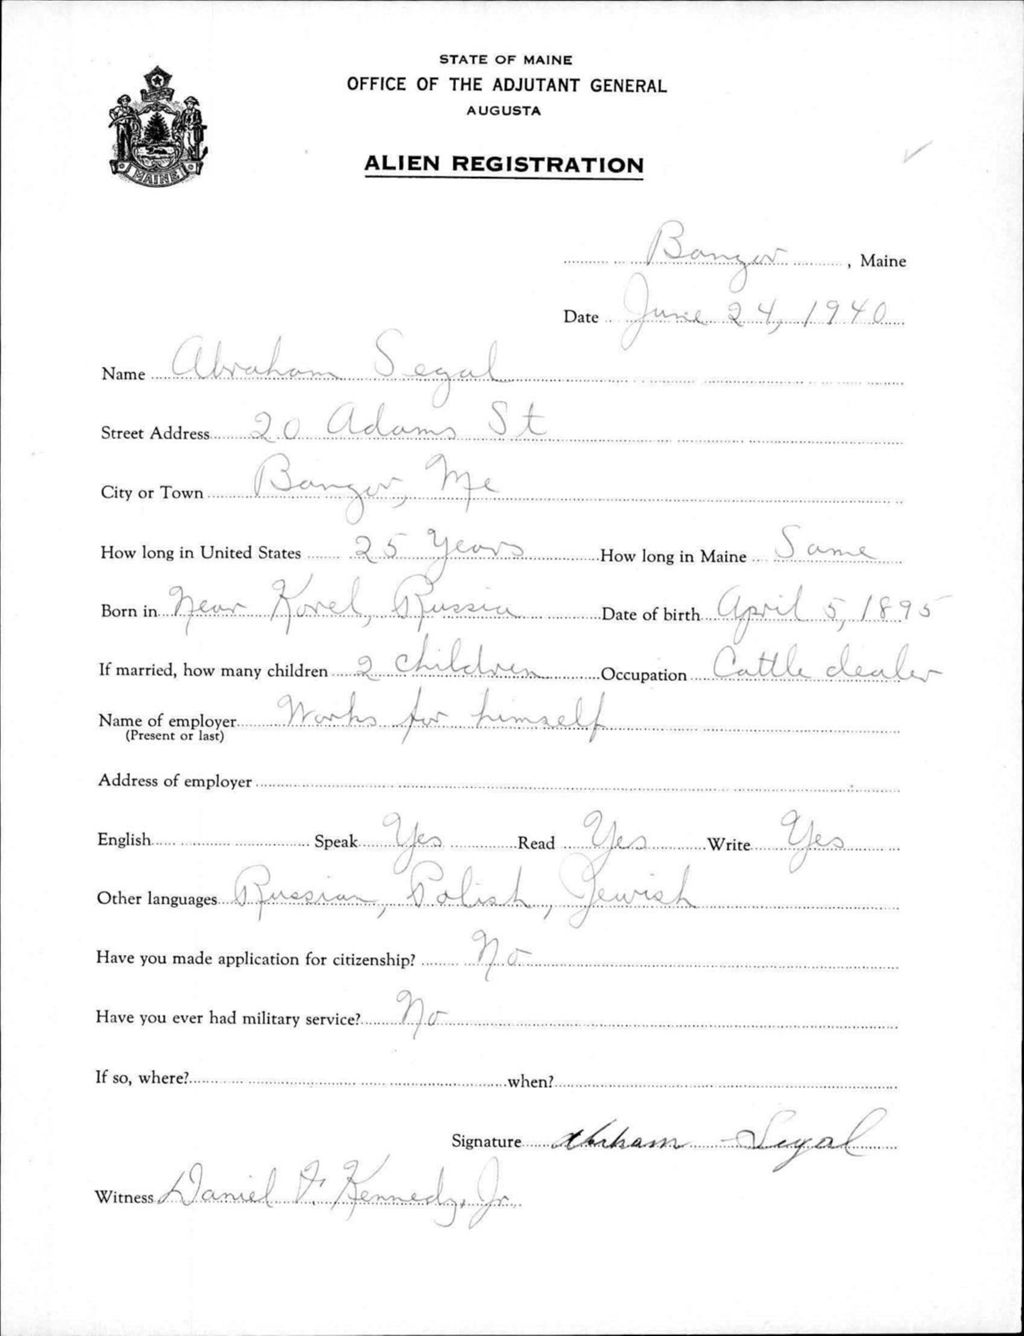 STATE OF MAINE
OFFICE OF THE ADJUTANT GENERAL
AUGUSTA
ALIEN REGISTRATION
MAINE
Bangor, Maine
Date June 24, 1940
Name Abraham Segal
Street Address 20 Adams St
City or Town Bangor, Me
How long in United States 25 Years How long in Maine Same
Born in Near Kovel, Russia Date of birth April 5, 1895
If married, how many children 2 children Occupation Cattle dealer
Name of employer Works for himself
(Present or last)
Address of employer
English Speak Yes Read Yes Write Yes
Other languages Russian, Polish, Jewish
Have you made application for citizenship? No
Have you ever had military service? No
If so, where? when?
Signature Abraham Segal
Witness Daniel F. Kennedy, Jr.